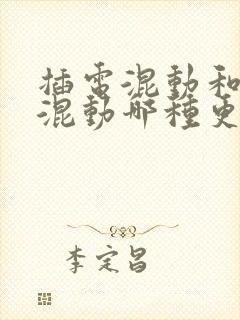 插電混動和
混動哪種更
李定昌